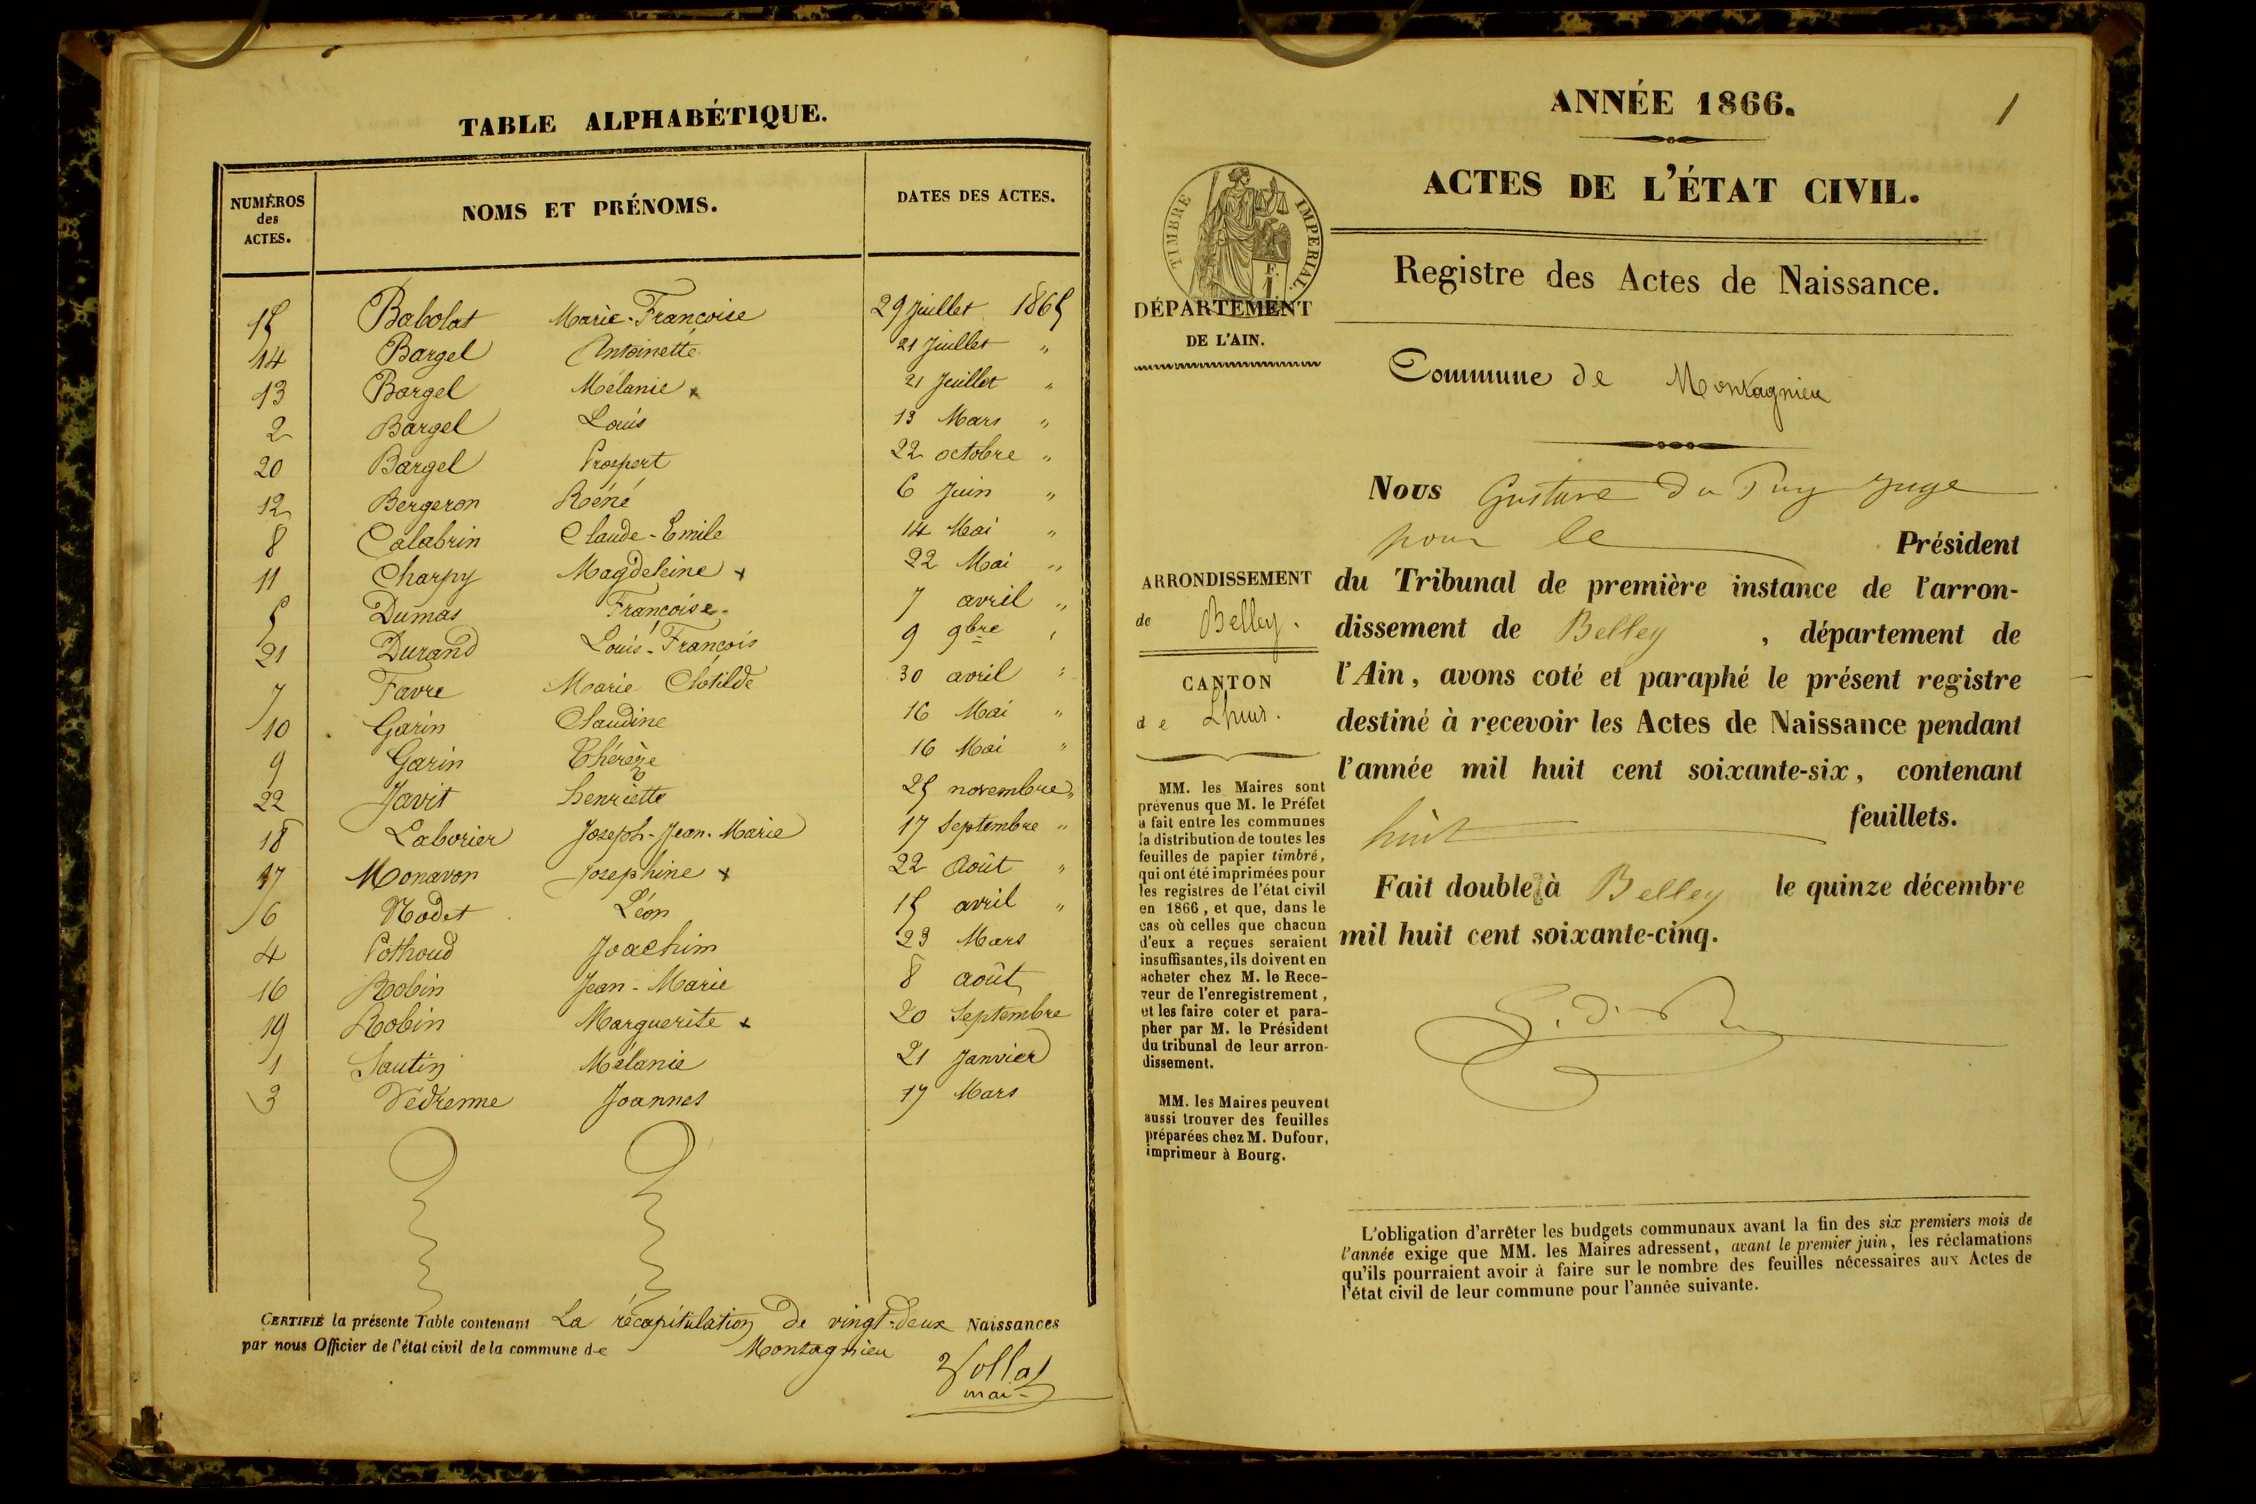 TABLE ALPHABÉTIQUE.
NUMÉROS
des
ACTES.
NOMS ET PRÉNOMS.
DATES DES ACTES.
15 Babolat Marie-Françoise 29 Juillet 1865
14 Bargel Antoinette 21 Juillet "
13 Bargel Mélanie x 21 Juillet "
2 Bargel Louis 13 Mars "
20 Bargel Prospert 22 octobre "
12 Bergeron Réné 6 Juin "
8 Calabrin Claude-Emile 14 Mai "
11 Charpy Magdeleine x 22 Mai "
5 Dumas Françoise 7 avril "
21 Durand Louis-François 9 9bre "
7 Favre Marie Clotilde 30 avril "
10 Garin Claudine 16 Mai "
9 Garin Thérèze 16 Mai "
22 Javit henriette 25 novembre "
18 Laborier Joseph-Jean-Marie 17 Septembre "
17 Monavon Josephine x 22 Août "
6 Nodet Léon 15 avril "
4 Pothoud Joachim 23 Mars
16 Robin Jean-Marie 8 août
19 Robin Marguerite x 20 Septembre
1 Sautin Mélanie 21 Janvier
3 Vedrenne Joannes 17 Mars
CERTIFIÉ la présente Table contenant La récapitulation De vingt-deux Naissances
par nous Officier de l'état civil de la commune de Montagnieu
mai
1
ANNÉE 1866.
ACTES DE L'ÉTAT CIVIL.
TIMBRE IMPERIAL.
DÉPARTEMENT
DE L'AIN.
Registre des Actes de Naissance.
Commune de Montagnieu
ARRONDISSEMENT
de Belley.
CANTON
de Lhuis.
MM. les Maires sont
prévenus que M. le Préfet
a fait entre les communes
la distribution de toutes les
feuilles de papier timbré,
qui ont été imprimées pour
les registres de l'état civil
en 1866, et que, dans le
cas où celles que chacun
d'eux a reçues seraient
insuffisantes, ils doivent en
acheter chez M. le Rece-
veur de l'enregistrement,
et les faire coter et para-
pher par M. le Président
du tribunal de leur arron-
dissement.
MM. les Maires peuvent
aussi trouver des feuilles
préparées chez M. Dufour,
imprimeur à Bourg.
Nous Gustave Du Puy Juge
pour le Président
du Tribunal de première instance de l'arron-
dissement de Belley, département de
l'Ain, avons coté et paraphé le présent registre
destiné à recevoir les Actes de Naissance pendant
l'année mil huit cent soixante-six, contenant
huit feuillets.
Fait double à Belley le quinze décembre
mil huit cent soixante-cinq.
L'obligation d'arrêter les budgets communaux avant la fin des six premiers mois de
l'année exige que MM. les Maires adressent, avant le premier juin, les réclamations
qu'ils pourraient avoir à faire sur le nombre des feuilles nécessaires aux Actes de
l'état civil de leur commune pour l'année suivante.